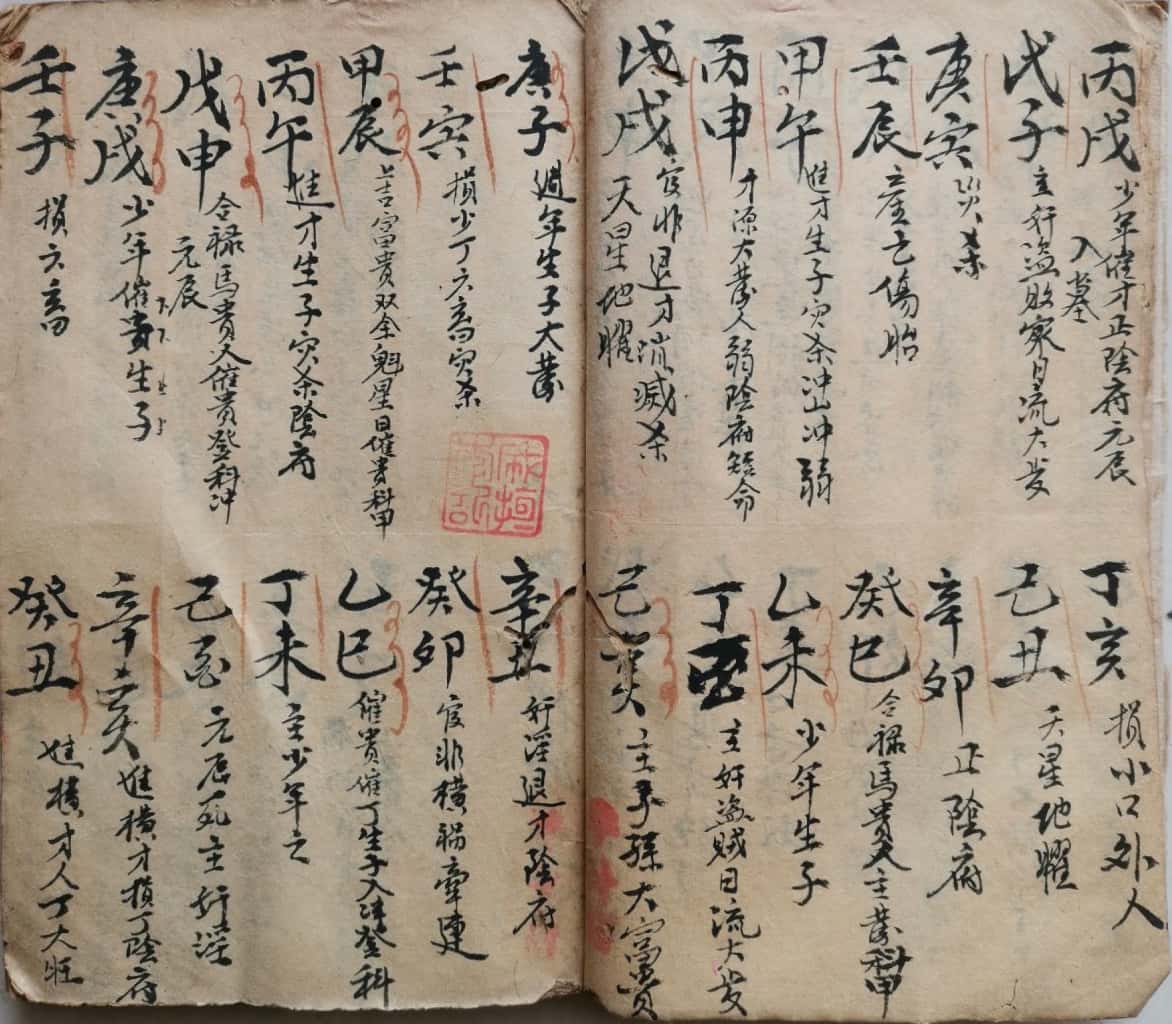 丙戌 少年催才正陰府元辰
入墓
戊子 主奸盗敗家日流大发
庚寅 災杀
壬辰 産亡傷胎
甲午 進才生子灾杀冲山冲弱
丙申 才源大發人弱陰府短命
戊戌 官非退才消滅杀
天星地曜
丁亥 損小口外人
己丑 天星地曜
辛卯 正陰府
癸巳 合禄馬贵人主發科甲
乙未 少年生子
丁酉 主奸盗賊日流大发
己亥 主子孫大富貴
庚子 週年生子大發
壬寅 損少丁六畜灾杀
甲辰 上吉富貴双全魁星日催貴科甲
丙午 進才生子灾杀陰府
戊申 合禄馬貴人催貴登科冲
元辰
庚戌 少年催貴生子
壬子 損六畜
辛丑 奸淫退才陰府
癸卯 官非横禍牽連
乙巳 催貴催丁生子入泮登科
丁未 主少年亡
己酉 元辰死主奸淫
辛亥 進横才損丁陰府
癸丑 進横才人丁大旺